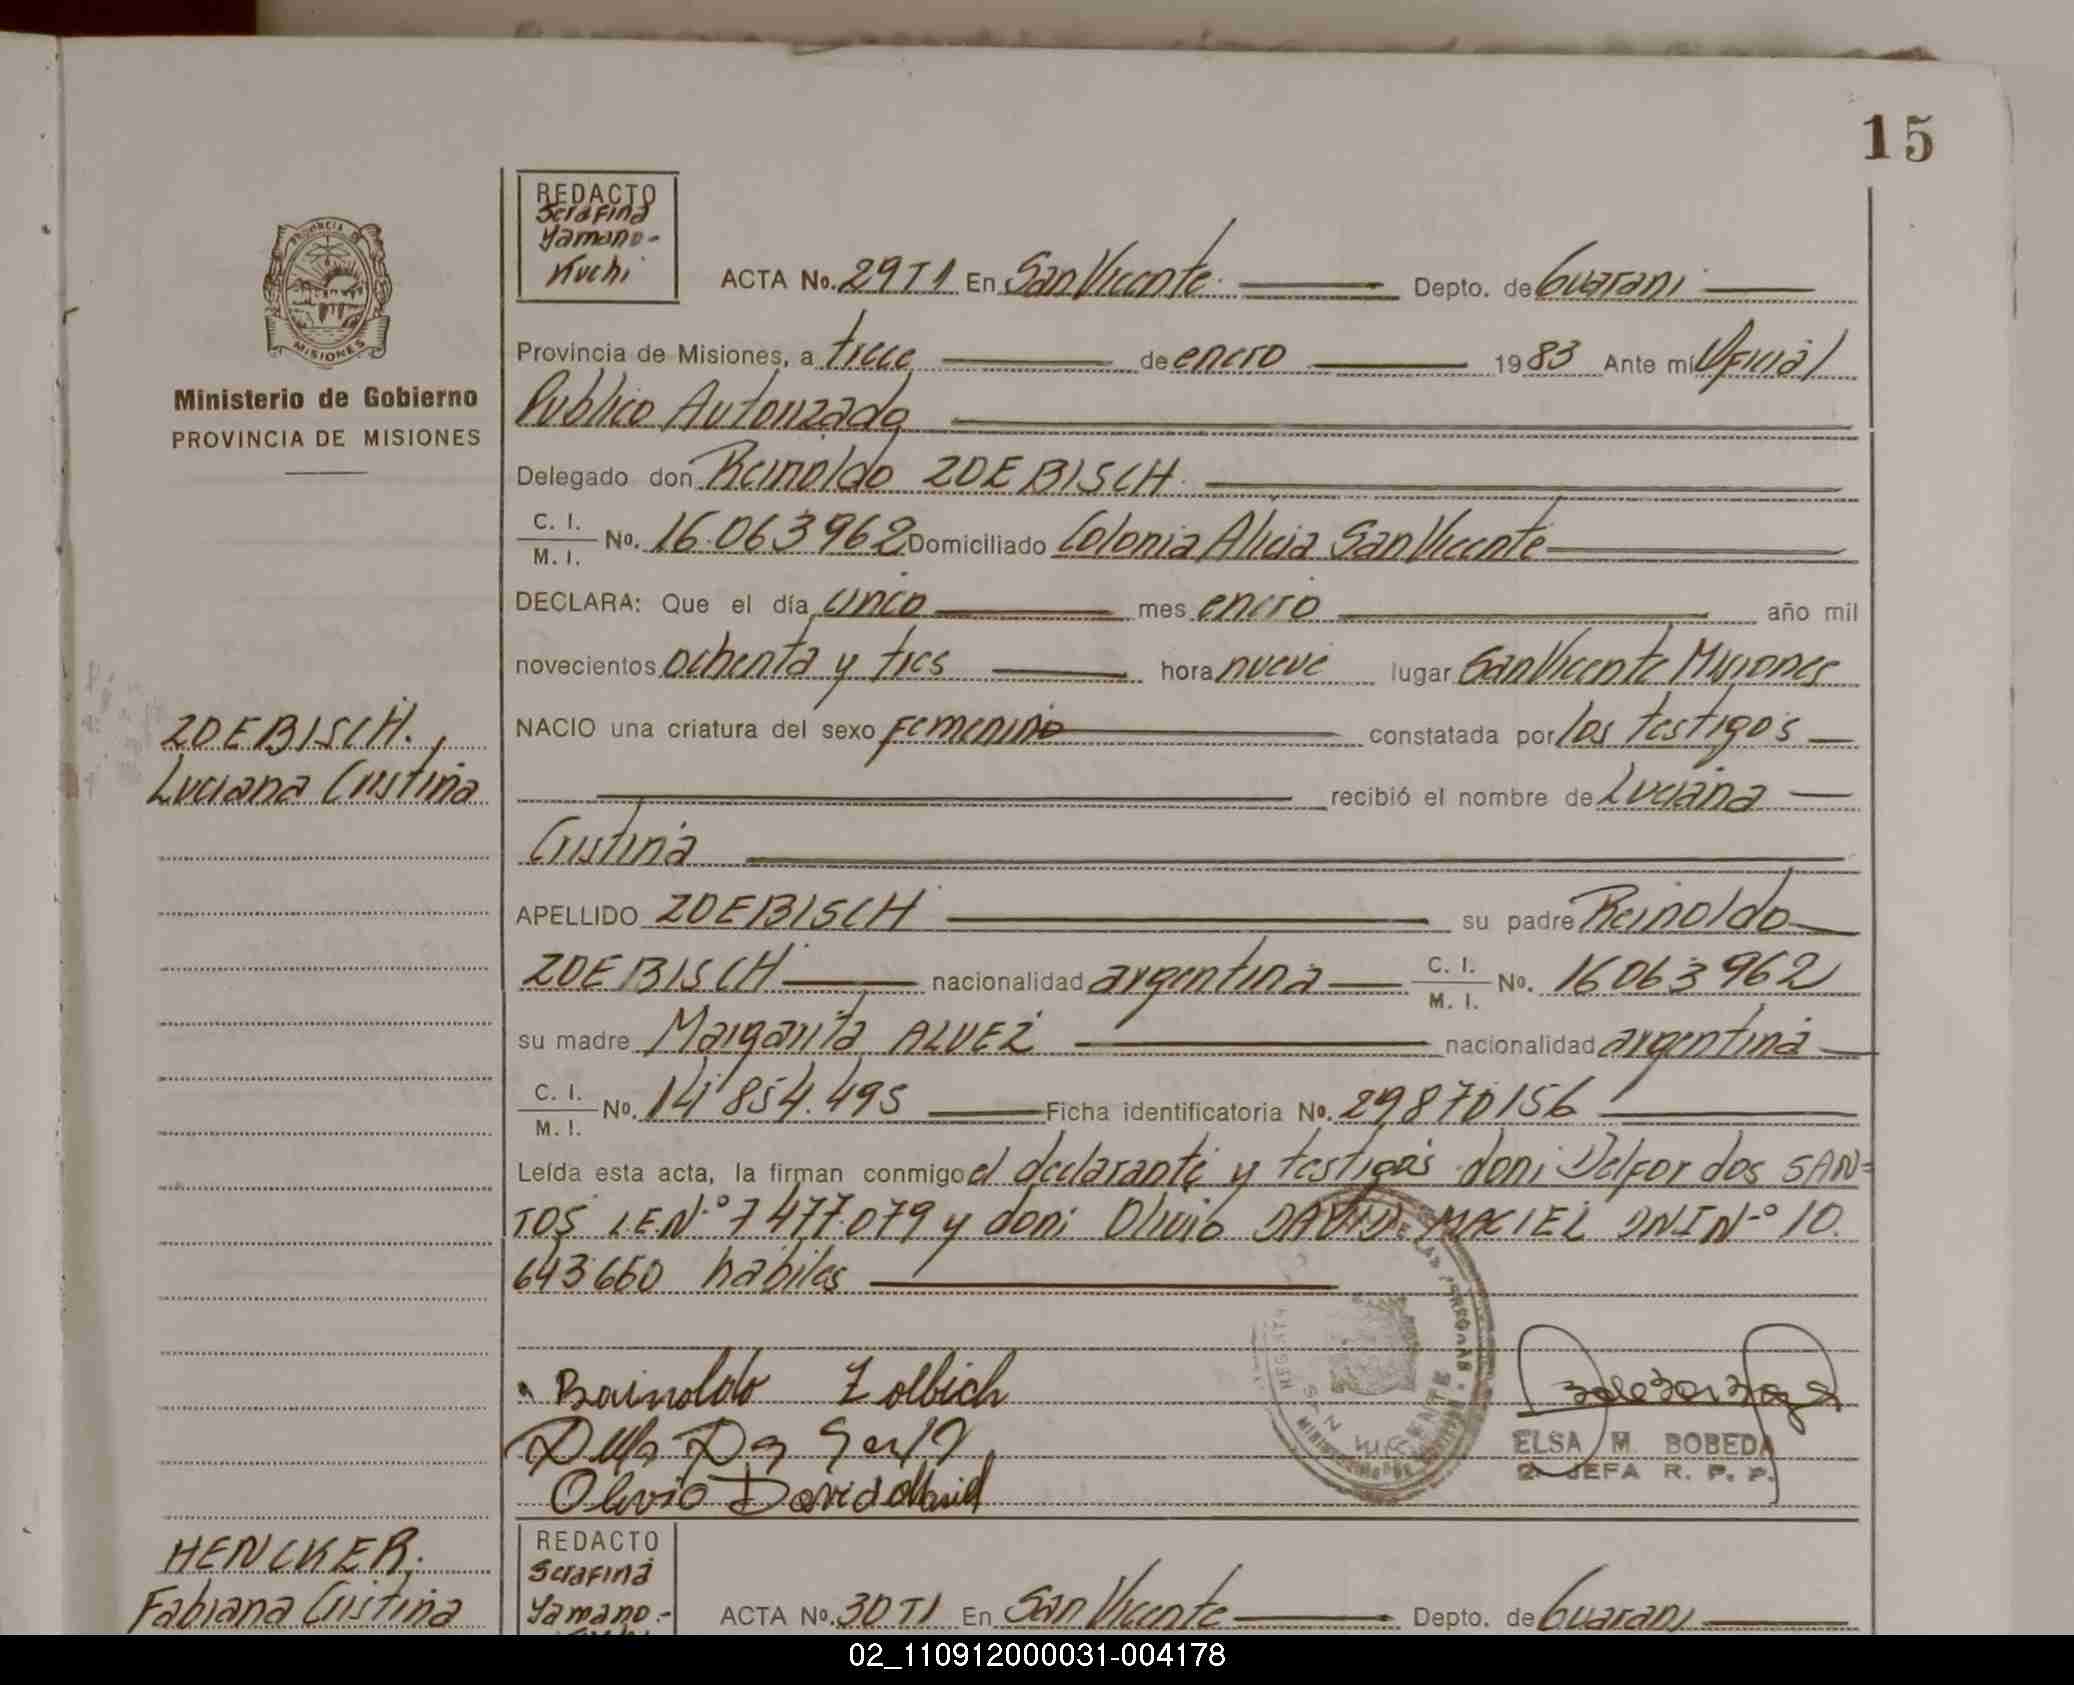 15
REDACTO
Serafina
Yamano-
Kuchi
PROVINCIA DE
MISIONES
Ministerio de Gobierno
PROVINCIA DE MISIONES
ACTA No. 29 T1 En San Vicente Depto. de Guarani
Provincia de Misiones, a trece de enero 1983 Ante mí Oficial
Publico Autorizado
Delegado don Reinoldo ZOEBISCH
C. I.
M. I. No. 16.063962 Domiciliado Colonia Alicia San Vicente
DECLARA: Que el día cinco mes enero año mil
novecientos ochenta y tres hora nueve lugar San Vicente Misiones
NACIO una criatura del sexo femenino constatada por los testigos
recibió el nombre de Luciana
Cristina
ZOEBISCH.
Luciana Cristina
APELLIDO ZOEBISCH su padre Reinoldo
ZOEBISCH nacionalidad argentina C. I.
M. I. No. 16063962
su madre Margarita ALVEZ nacionalidad argentina
C. I.
M. I. No. 14 854.495 Ficha identificatoria No. 29870156
Leída esta acta, la firman conmigo el declarante y testigos don: Delfor dos SAN=
TOS L.E.N.º 7 477.079 y don: Olivio DAVID MACIEL DNI Nº 10.
643660 habiles
Reinoldo Zoebich
Olivio David Maciel
ELSA M. BOBEDA
2º JEFA R. P. P.
HENCKER.
Fabiana Cristina
REDACTO
Serafina
Yamano.-
ACTA No. 30 T1 En San Vicente Depto. de Guarani
02_110912000031-004178